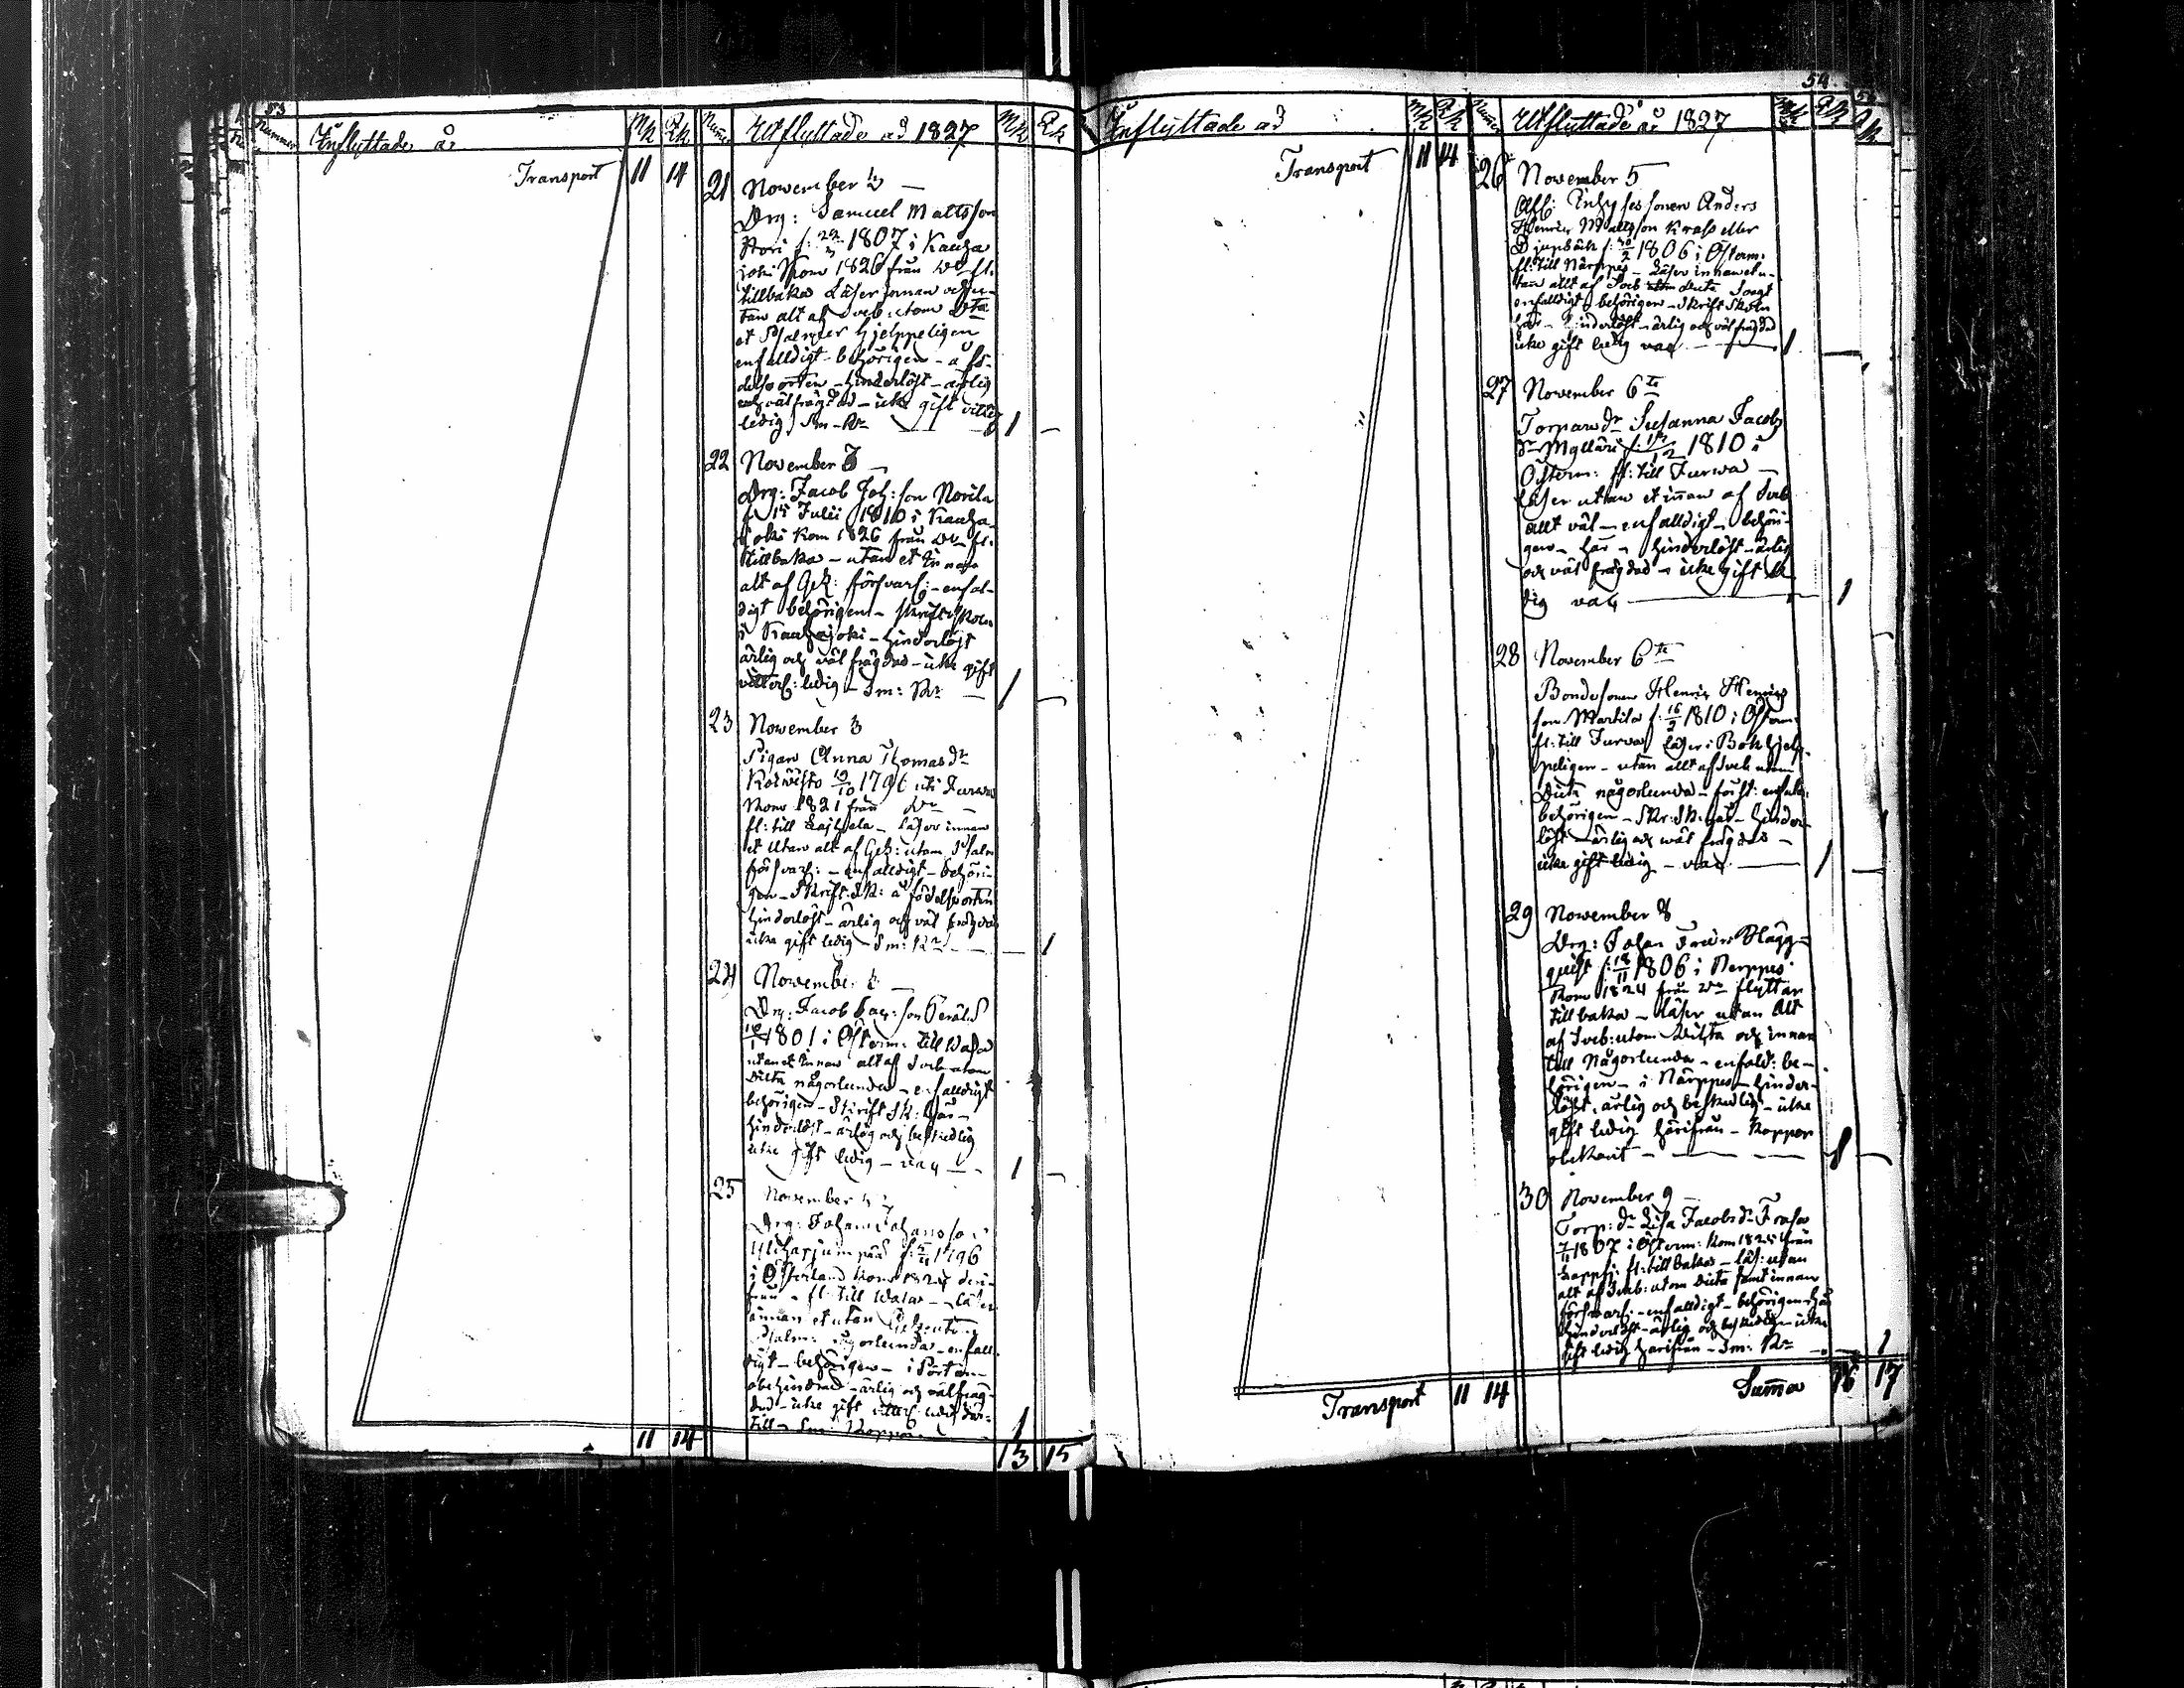 53
Nummer
Inflyttade år
Mk
Qk
Numer
Utflyttade år 1827
Mk
Qk
Transport 11 14
21 November
Drg: Samuel Mattsson
f: 22/3 1807 i Kauha
joki Kom 1826 från fl.
tillbaka Läser innan och u-
tan alt af Sveb. utom Dta
et Psalmer hjelppeligen
enfalldigt - behörigen - å fö-
delse orten - hinderlöst - ärlig
och välfrägdad - icke gift
ledig Sm - Kr 1 -
22 November 3
Drg: Jacob Joh: son Norila
f 15 Julii 1810 i Kauha
joki Kom 1826 från fl.
tillbaka - utan et innan
alt af Gez: försvarl: - enfal-
digt behörigen - skriftskolan
i Kauhajoki - hinderlöst
ärlig och välfrägdad - icke gift
ledig - Sm: Kr 1 -
23 November 3
Pigan Anna Thomas dr
Koivisto 19/10 1796 uti Jurva
Kom 1821 från
fl: till Laihela - Läser innan
et utan alt af Gez: utom Psalm
försvarl: - enfalldigt - behöri-
gen - Skrift. Sk: å födelseorten
hinderlöst - ärlig och väl frägdad
icke gift ledig Sm: Kr - 1
24 November
Drg: Jacob son
1801 i Österm: till Wasa
utan et innan alt af Sveb utom
Dicta någorlunda - enfalldigt
behörigen - Skrift Sk: här -
hinderlöst - ärlig och beskedlig
icke gift ledig - vac 1 -
25 November
Drg: Johan Johansson
f: 1796
i Österland Kom 1824 deri-
från - fl: till Wasa - Läser
innan et utan
Psalm: någorlunda - enfall-
digt - behörigen - i Pörtom
obehindrad - ärlig och välfräg-
dad - icke gift ledig där-
till - Sm: Koppor 1
11 14 13 15
54
Inflyttade år
Mk
Qk
Numer
Utflyttade år 1827
Mk
Qk
Transport 11 14
26 November 5
Afl: Inhyses sonen Anders
Henric Mattsson Krass eller
Djupbäck f: 1806 i Österm.
fl: till Närppes - Läser innan et u-
tan allt af Sveb Dicta
enfalldigt behörigen - Skrift Skolan
här - hinderlöst - ärlig och välfrägdad
icke gift ledig vac 1 -
27 November 6te
Torpare dr Susanna Jacobs
dr Myllari f: 1810 i
Österm: fl: till Jurva -
Läser utan et innan af Sveb
allt väl - enfalldigt - behöri-
gen - här - hinderlöst - ärlig
och väl frägdad - icke gift le
dig vac - 1
28 November 6te
Bonde sonen Henric Henrics
son Martila f: 16/2 1810 i Österm:
fl: till Jurva Läser i Bok hjelp-
peligen - utan allt af Sveb utom
Dicta någorlunda - enfaldi:
behörigen - Skr: Sk: här - hinder-
löst - ärlig och wäl frägdad -
icke gift ledig - vac 1 -
29 November 8
Drg: Johan Hägg-
quist f: 18/11 1806 i Nerppes
Kom 1824 från flyttar
tillbaka - Läser utan Alt
af Sveb: utom Dicta och innan
till Någorlunda - enfald: be-
hörigen - i Närppes - hinder-
löst, ärlig och beskedlig - icke
gift ledig härifrån - Koppor
obekant 1 -
30 November 9
Torp: dr Lisa Jacobs dr Frasa
1807 i Österm: Kom 1825 från
fl: tillbaka - Läs: utan
alt af Sveb: utom Dicta samt innan
försvarl: - enfalldigt - behörigen - här
hinderlöst - ärlig och beskedlig - icke
gift ledig härifrån - Sm: Kr - 1
Transport 11 14 Summa 16 17